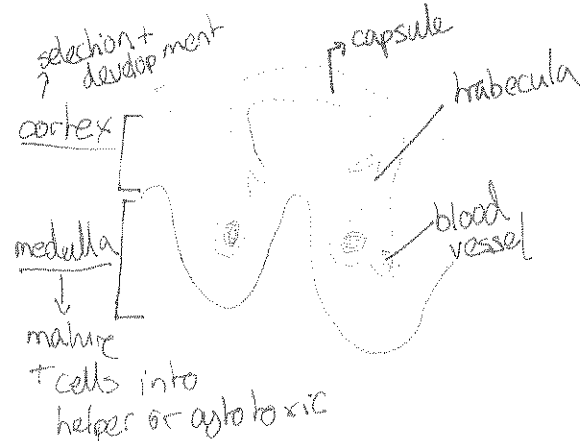 selection +
development
capsule
trabecula
cortex
medulla
blood
vessel
mature
T cells into
helper or cytotoxic